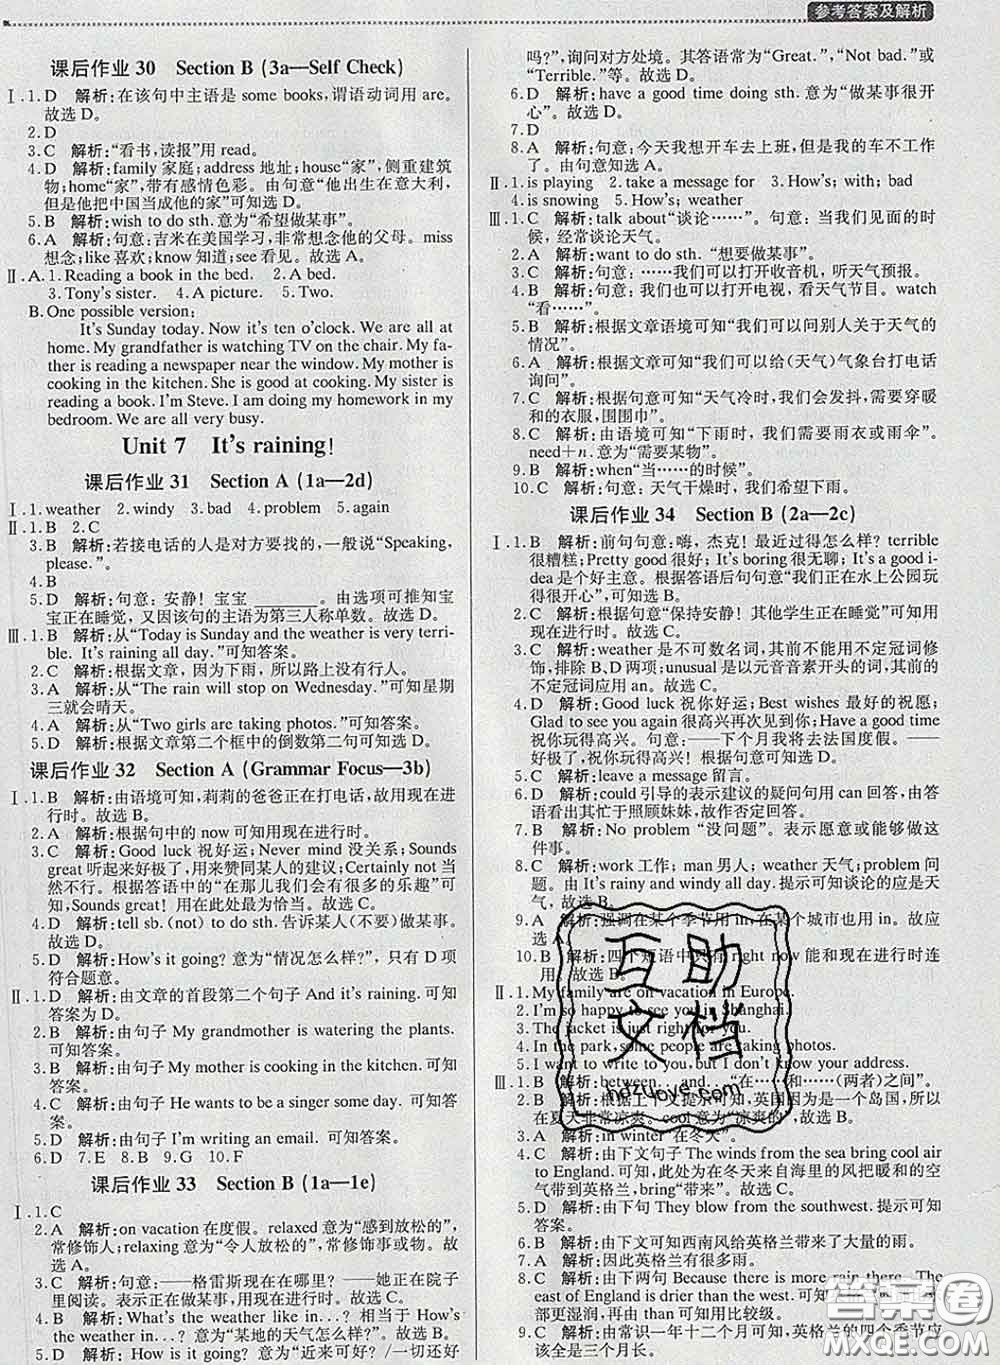 参考答案及解析
课后作业 30 Section B (3a—Self Check)
Ⅰ.1.D 解析:在该句中主语是 some books,谓语动词用 are。
故选 D。
2.D
3.C 解析:“看书,读报”用 read。
4.D 解析:family 家庭;address 地址;house“家”,侧重建筑
物;home“家”,带有感情色彩。由句意“他出生在意大利,
但是他把中国当成他的家”可知选 D。
5.B 解析:wish to do sth. 意为“希望做某事”。
6.A 解析:句意:吉米在美国学习,非常想念他的父母。miss
想念;like 喜欢;know 知道;see 看见。故选 A。
Ⅱ.A. 1. Reading a book in the bed. 2. A bed.
3. Tony's sister. 4. A picture. 5. Two.
B. One possible version:
It's Sunday today. Now it's ten o'clock. We are all at
home. My grandfather is watching TV on the chair. My fa-
ther is reading a newspaper near the window. My mother is
cooking in the kitchen. She is good at cooking. My sister is
reading a book. I'm Steve. I am doing my homework in my
bedroom. We are all very busy.
Unit 7 It's raining!
课后作业 31 Section A (1a—2d)
Ⅰ.1. weather 2. windy 3. bad 4. problem 5. again
Ⅱ.1.B 2.C
3.B 解析:若接电话的人是对方要找的,一般说“Speaking,
please.”。
4.B
5.D 解析:句意:安静!宝宝________。由选项可推知宝
宝正在睡觉,又因该句的主语为第三人称单数。故选 D。
Ⅲ.1.B 解析:从“Today is Sunday and the weather is very terri-
ble. It's raining all day.”可知答案。
2.C 解析:根据文章,因为下雨,所以路上没有行人。
3.A 解析:从“The rain will stop on Wednesday.”可知星期
三就会晴天。
4.A 解析:从“Two girls are taking photos.”可知答案。
5.D 解析:根据文章第二个框中的倒数第二句可知选 D。
课后作业 32 Section A (Grammar Focus—3b)
Ⅰ.1.B 解析:由语境可知,莉莉的爸爸正在打电话,故用现在进
行时。故选 B。
2.A 解析:根据句中的 now 可知用现在进行时。
3.C 解析:Good luck 祝好运;Never mind 没关系;Sounds
great 听起来好极了,用来赞同某人的建议;Certainly not 当然
不。根据答语中的“在那儿我们会有很多的乐趣”可
知,Sounds great! 用在此处最为恰当。故选 C。
4.D 解析:tell sb. (not) to do sth. 告诉某人(不要)做某事。
故选 D。
5.D 解析:How's it going? 意为“情况怎么样?”,只有 D 项
符合题意。
Ⅱ.1.D 解析:由文章的首段第二个句子 And it's raining. 可知
答案为 D。
2.B 解析:由句子 My grandmother is watering the plants.
可知答案。
3.B 解析:由句子 My mother is cooking in the kitchen. 可知
答案。
4.C 解析:由句子 He wants to be a singer some day. 可知
答案。
5.D 解析:由句子 I'm writing an email. 可知答案。
6.D 7.E 8.B 9.G 10.F
课后作业 33 Section B (1a—1e)
Ⅰ.1.C
2.A 解析:on vacation 在度假。relaxed 意为“感到放松的”,
常修饰人;relaxing 意为“令人放松的”,常修饰事或物。故
选 A。
3.C 解析:句意:——格雷斯现在在哪里?——她正在院子
里阅读。表示正在做某事,用现在进行时。故选 C。
4.B 解析:What's the weather like in...? 相当于 How's
the weather in...? 意为“某地的天气怎么样?”。
5.B 解析:How is it going? 意为“近来可好?/一切还好
吗?”,询问对方处境。其答语常为“Great.”,“Not bad.”或
“Terrible.”等。故选 B。
6.D 解析:have a good time doing sth. 意为“做某事很开
心”。故选 D。
7.D
8.A 解析:句意:今天我想开车去上班,但是我的车不工作
了。由句意可知选 A。
Ⅱ.1. is playing 2. take a message for 3. How's; with; bad
4. is snowing 5. How's; weather
Ⅲ.1.C 解析:talk about“谈论……”。句意:当我们见面的时
候,经常谈论天气。
2.A 解析:want to do sth. “想要做某事”。
3.C 解析:句意:……我们可以打开收音机,听天气预报。
4.B 解析:句意:我们也可以打开电视,看天气节目。watch
“看……”。
5.B 解析:根据文章语境可知“我们可以问别人关于天气的
情况”。
6.A 解析:根据文章可知“我们可以给(天气)气象台打电话
询问”。
7.B 解析:根据句意可知“天气冷时,我们会发抖,需要穿暖
和的衣服,围围巾”。
8.C 解析:由语境可知“下雨时,我们需要雨衣或雨伞”。
need+n. 意为“需要某物”。
9.B 解析:when“当……的时候”。
10.C 解析:句意:天气干燥时,我们希望下雨。
课后作业 34 Section B (2a—2c)
Ⅰ.1.B 解析:前句句意:嗨,杰克!最近过得怎么样? terrible
很糟糕;Pretty good 很好;It's boring 很无聊;It's a good i-
dea 是个好主意。根据答语后句句意“我们正在水上公园玩
得很开心”,可知选 B。
2.C 解析:根据句意“保持安静!其他学生正在睡觉”可知用
现在进行时。故选 C。
3.C 解析:weather 是不可数名词,其前不能用不定冠词修
饰,排除 B、D 两项;unusual 是以元音音素开头的词,其前的
不定冠词应用 an。故选 C。
4.D 解析:Good luck 祝你好运;Best wishes 最好的祝愿;
Glad to see you again 很高兴再次见到你;Have a good time
祝你玩得高兴。句意:——下个月我将要去法国度假。——
好极了,祝你玩得高兴。故选 D。
5.C 解析:leave a message 留言。
6.D 解析:could 引导的表示建议的疑问句用 can 回答,由答
语看出其忙于照顾妹妹,故作否定回答。
7.B 解析:No problem “没问题”。表示愿意或能够做这
件事。
8.C 解析:work 工作;man 男人;weather 天气;problem 问
题。由 It's rainy and windy all day. 提示可知谈论的应是天
气,故选 C。
9.A 解析:强调在某个季节用 in,在某个城市也用 in。故应
选 A。
10.B 解析:四个短语中只有 right now 能和现在进行时连
用,故选 B。
Ⅱ.1. My family are on vacation in Europe.
2. I'm so happy to see you in Shanghai.
3. The jacket is just right for you.
4. In the park, some people are taking photos.
5. I want to write to you, but I don't know your address.
Ⅲ.1.B 解析:between...and... “在……和……(两者)之间”。
2.B 解析:根据上下文提示可知,英国因为是一个岛国,所以
在夏天非常凉爽。cool 意为“凉爽的”。
3.A 解析:in winter“在冬天”。
4.B 解析:由下文句子 The winds from the sea bring cool air
to England. 可知,此处为在冬天来自海里的风把冷的空
气带到英格兰,bring“带来”。故选 B。
5.D 解析:由下句 They blow from the southwest. 提示可知
答案。
6.B 解析:由下文可知西南风给英格兰带来了大量的雨。
7.A 解析:因此英格兰有很多雨。
8.C 解析:由下两句 Because there is more rain there. The
east of England is drier than the west. 可知英格兰的西
部更湿润,再由 than 可知用比较级。
9.C 解析:由常识一年十二个月可知,英格兰的四个季节应
该全是三个月长。
互助
文档
hdzuoye.com
答案卷
MXQE.COM